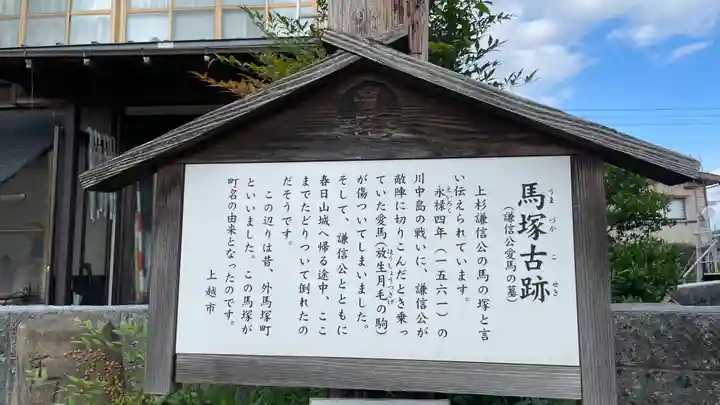 馬塚古跡
うまづかこせき
（謙信公愛馬の墓）
上杉謙信公の馬の塚と言
い伝えられています。
永禄四年（一五六一）の
川中島の戦いに、謙信公が
敵陣に切りこんだとき乗っ
ていた愛馬（放生月毛の駒）
が傷ついてしまいました。
そして、謙信公とともに
春日山城へ帰る途中、ここ
までたどりついて倒れたの
だそうです。
この辺りは昔、外馬塚町
といいました。この馬塚が
町名の由来となったのです。
上越市